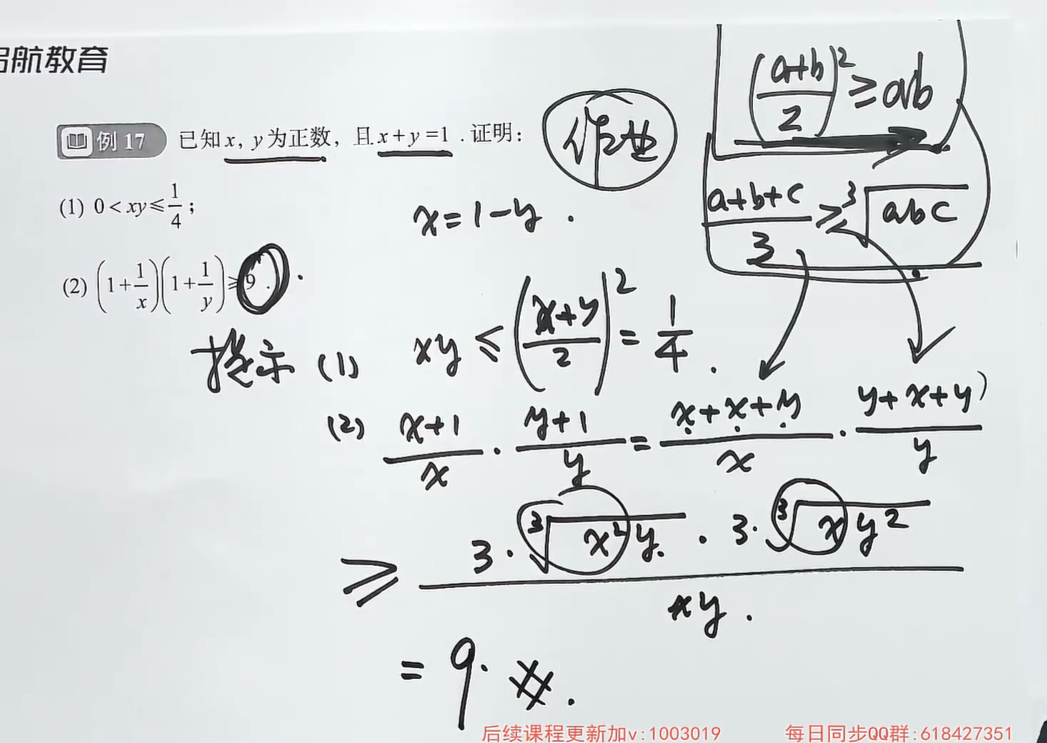 启航教育
例 17 已知x, y为正数，且x+y=1.证明：
(1) 0<xy≤1/4；
(2) (1+1/x)(1+1/y)≥9.
作业
((a+b)/2)²≥ab
(a+b+c)/3≥³√abc
x=1-y.
提示 (1) xy≤((x+y)/2)²=1/4.
(2) (x+1)/x·(y+1)/y=(x+x+y)/x·(y+x+y)/y
≥(3·³√x²y·3·³√xy²)/xy.
=9.#.
后续课程更新加v:1003019
每日同步QQ群:618427351